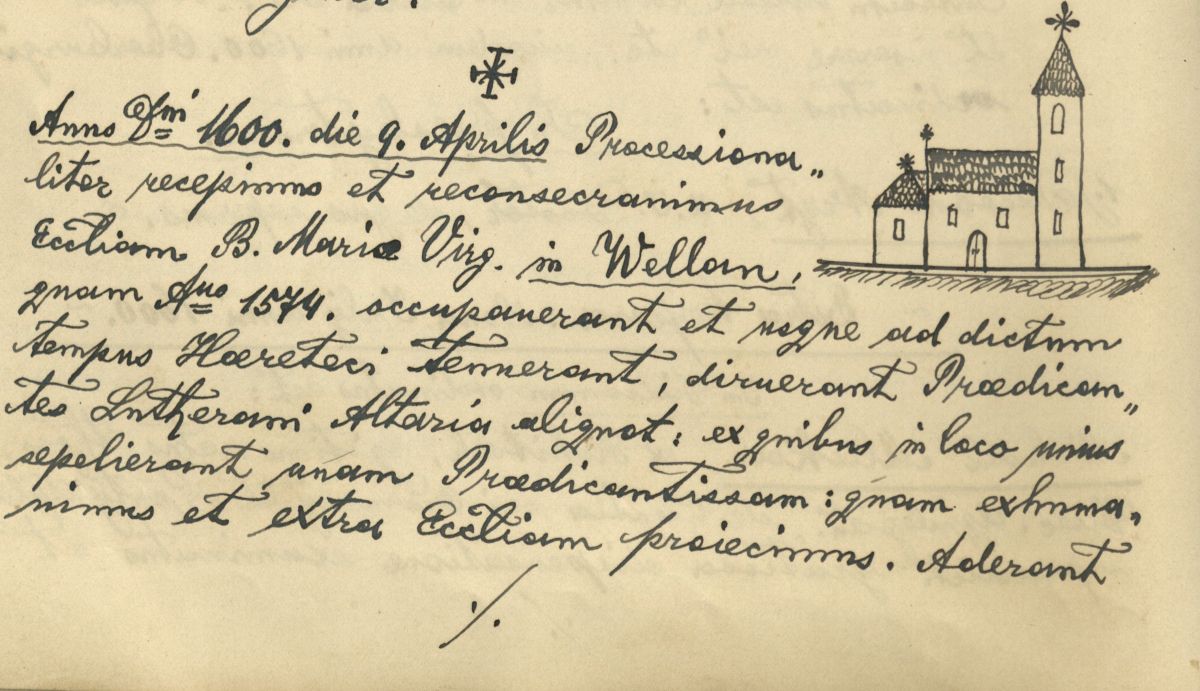 Anno Dni 1600. die 9. Aprilis Processiona„
liter recepimus et reconsecravimus
Eccliam B. Mariæ Virg. in Wellan,
quam Ano 1574. occupauerant et usque ad dictum
tempus Hæreteci tenuerant, diruerant Prædican„
tes Lutherani Altaria aliquot: ex quibus in loco unius
sepelierant unam Prædicantissam: quam exhuma„
uimus et extra Eccliam proiecimus. Aderant
./.